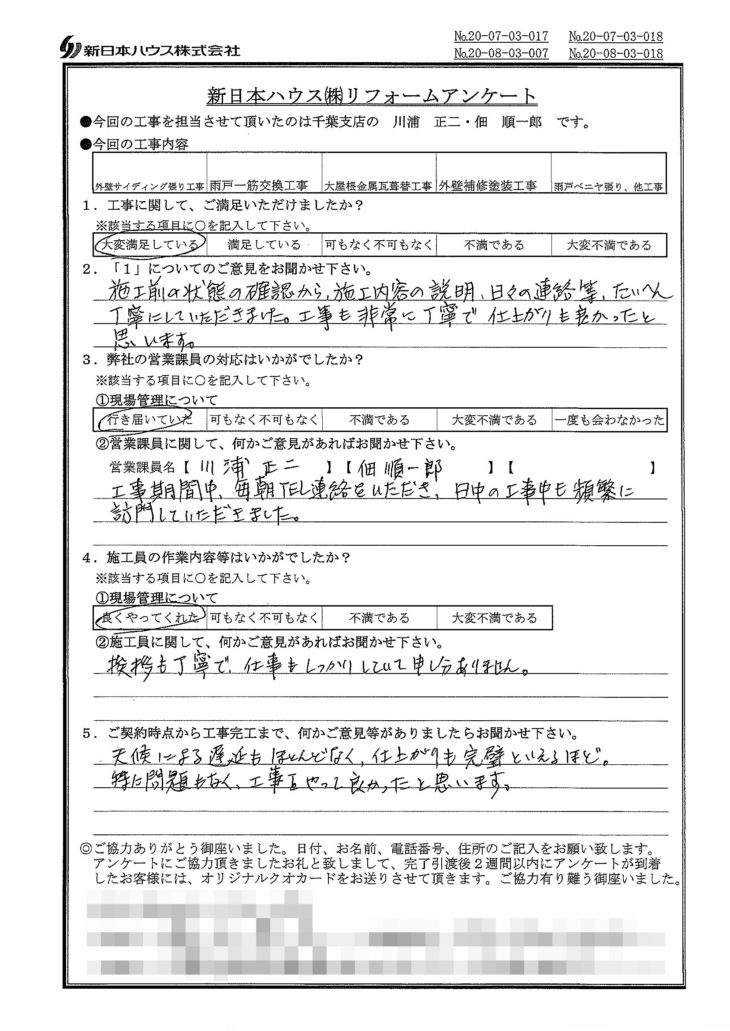 新日本ハウス株式会社
No.20-07-03-017 No.20-07-03-018
No.20-08-03-007 No.20-08-03-018
新日本ハウス㈱リフォームアンケート
●今回の工事を担当させて頂いたのは千葉支店の 川浦 正二・佃 順一郎 です。
●今回の工事内容
外壁サイディング張り工事 雨戸一筋交換工事 大屋根金属瓦葺替工事 外壁補修塗装工事 雨戸ベニヤ張り、他工事
1．工事に関して、ご満足いただけましたか？
※該当する項目に○を記入して下さい。
大変満足している 満足している 可もなく不可もなく 不満である 大変不満である
2．「1」についてのご意見をお聞かせ下さい。
施工前の状態の確認から、施工内容の説明、日々の連絡等、たいへん
丁寧にしていただきました。工事も非常に丁寧で仕上がりも良かったと
思います。
3．弊社の営業課員の対応はいかがでしたか？
※該当する項目に○を記入して下さい。
①現場管理について
行き届いていた 可もなく不可もなく 不満である 大変不満である 一度も会わなかった
②営業課員に関して、何かご意見があればお聞かせ下さい。
営業課員名【 川浦 正二 】【 佃順一郎 】【 】
工事期間中、毎朝TEL連絡をいただき、日中の工事中も頻繁に
訪問していただきました。
4．施工員の作業内容等はいかがでしたか？
※該当する項目に○を記入して下さい。
①現場管理について
良くやってくれた 可もなく不可もなく 不満である 大変不満である
②施工員に関して、何かご意見があればお聞かせ下さい。
挨拶も丁寧で、仕事もしっかりしていて申し分ありません。
5．ご契約時点から工事完工まで、何かご意見等がありましたらお聞かせ下さい。
天候による遅延もほとんどなく、仕上がりも完璧といえるほど。
特に問題もなく、工事をやって良かったと思います。
◎ご協力ありがとう御座いました。日付、お名前、電話番号、住所のご記入をお願い致します。
アンケートにご協力頂きましたお礼と致しまして、完了引渡後2週間以内にアンケートが到着
したお客様には、オリジナルクオカードをお送りさせて頂きます。ご協力有り難う御座いました。